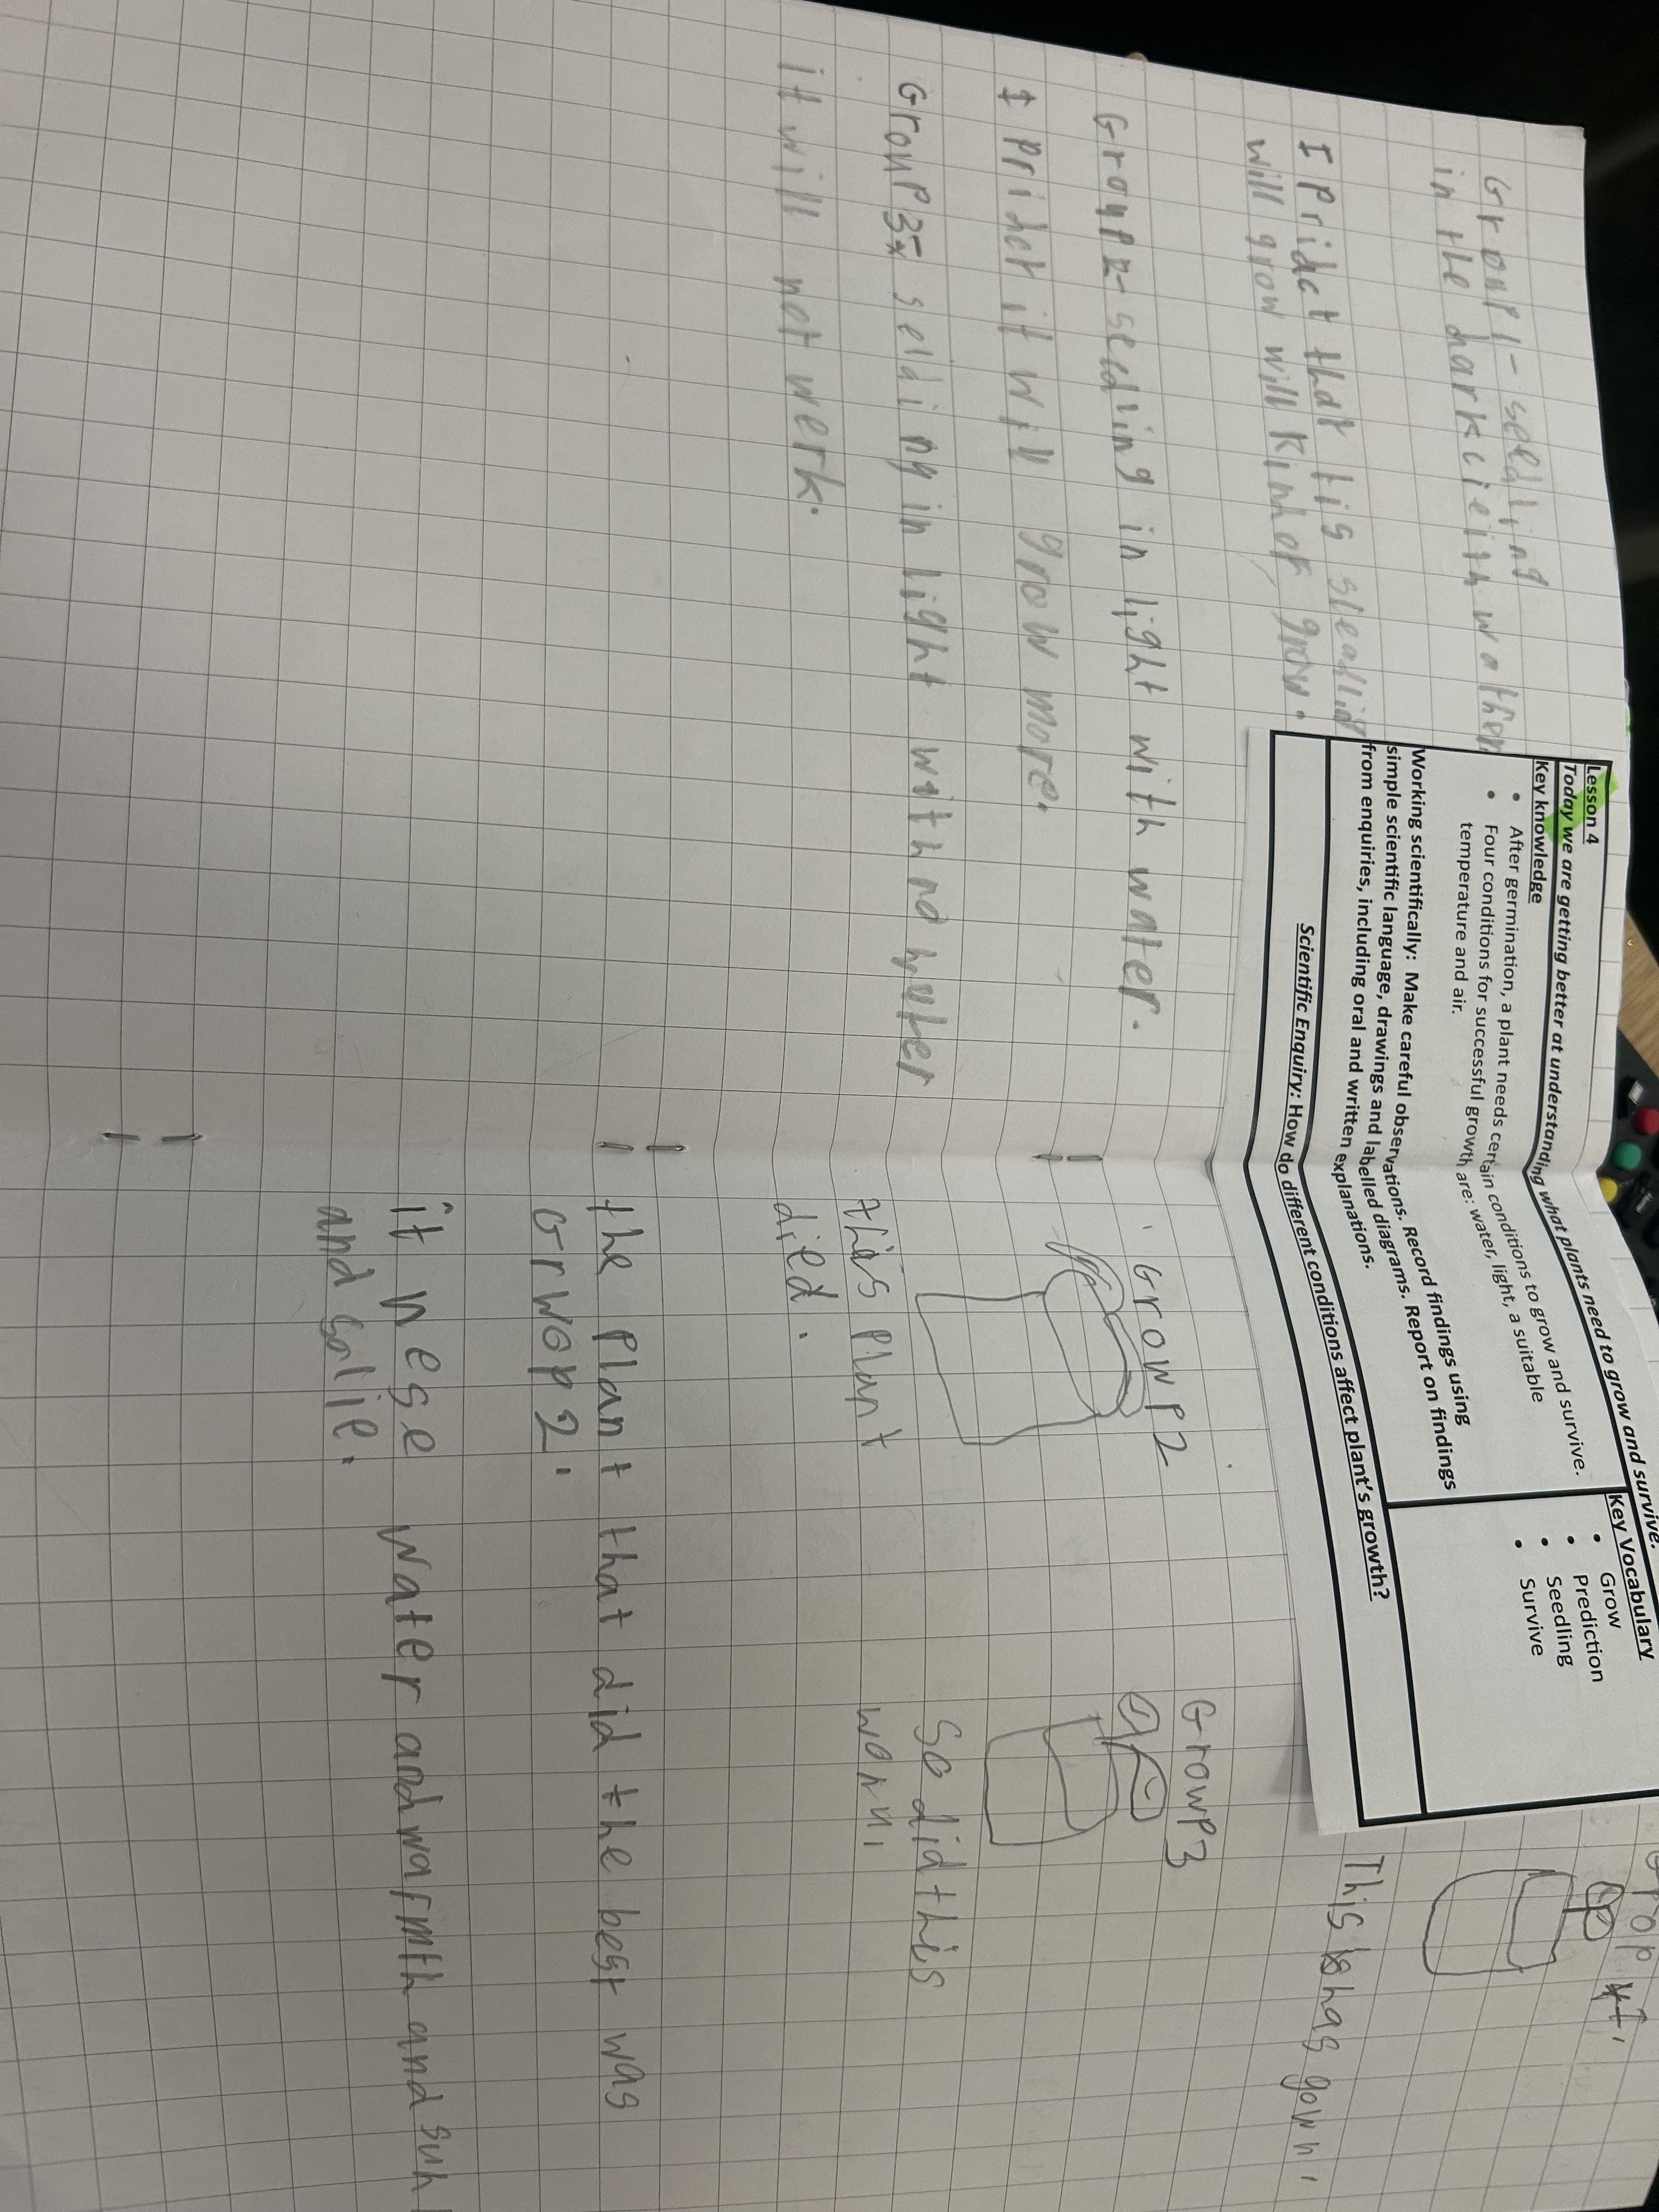 Lesson 4
Today we are getting better at understanding what plants need to grow and survive.
Key knowledge
• After germination, a plant needs certain conditions to grow and survive.
• Four conditions for successful growth are: water, light, a suitable
temperature and air.
Working scientifically: Make careful observations. Record findings using
simple scientific language, drawings and labelled diagrams. Report on findings
from enquiries, including oral and written explanations.
Key Vocabulary
• Grow
• Prediction
• Seedling
• Survive
Scientific Enquiry: How do different conditions affect plant's growth?
Group 1- seedling
in the dark with water
I Pridct that tis
will grow will kindof grow.
Group 2- seedling in light with water.
I Pridct it will grow more.
Group 3- selding in light with no water
it will not werk.
This has gown.
Growp 2
this plant
died.
Growp 3
So did this
won.
the Plant that did the best was
Grwop 2.
it nese water and warmth and sun
and solie.